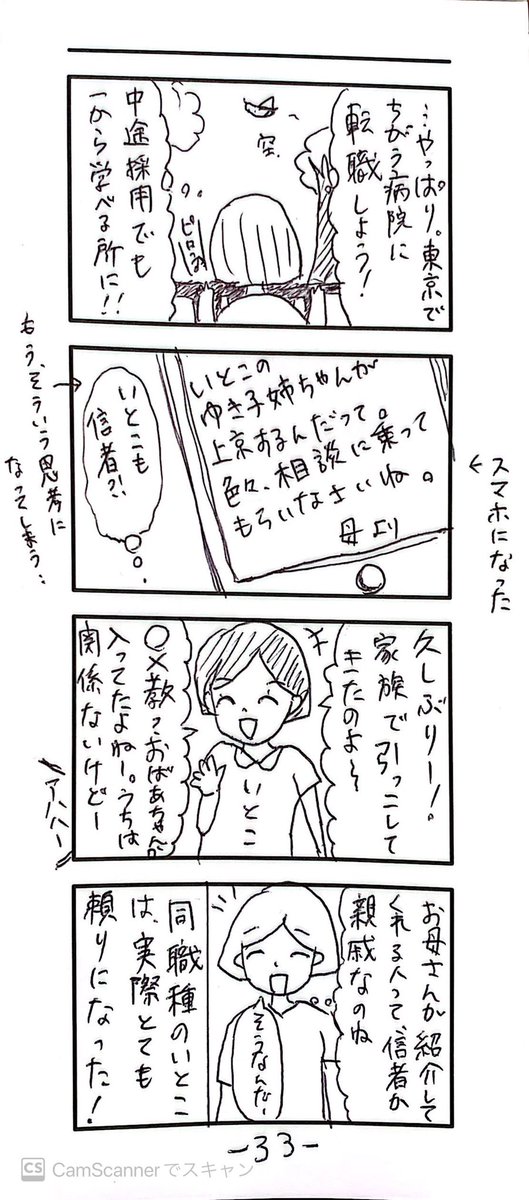 …やっぱり。東京で
ちがう病院に
転職しよう!
空
ピロロ
中途採用でも
一から学べる所に!!
いとこの
ゆき子姉ちゃんが
上京するんだって。
色々、相談に乗って
もらいなさいね。
母より
スマホになった
いとこも
信者?!
もう、そういう思考に
なってしまう…
久しぶりー!
家族で引っこして
きたのよ〜
いとこ
○×教?おばあちゃんが
入ってたよねー。うちは
関係ないけどー
アハハー
お母さんが紹介して
くれる人って、信者か
親戚なのね
そうなんだー
同職種のいとこ
は、実際とても
頼りになった!
-33-
CS CamScannerでスキャン